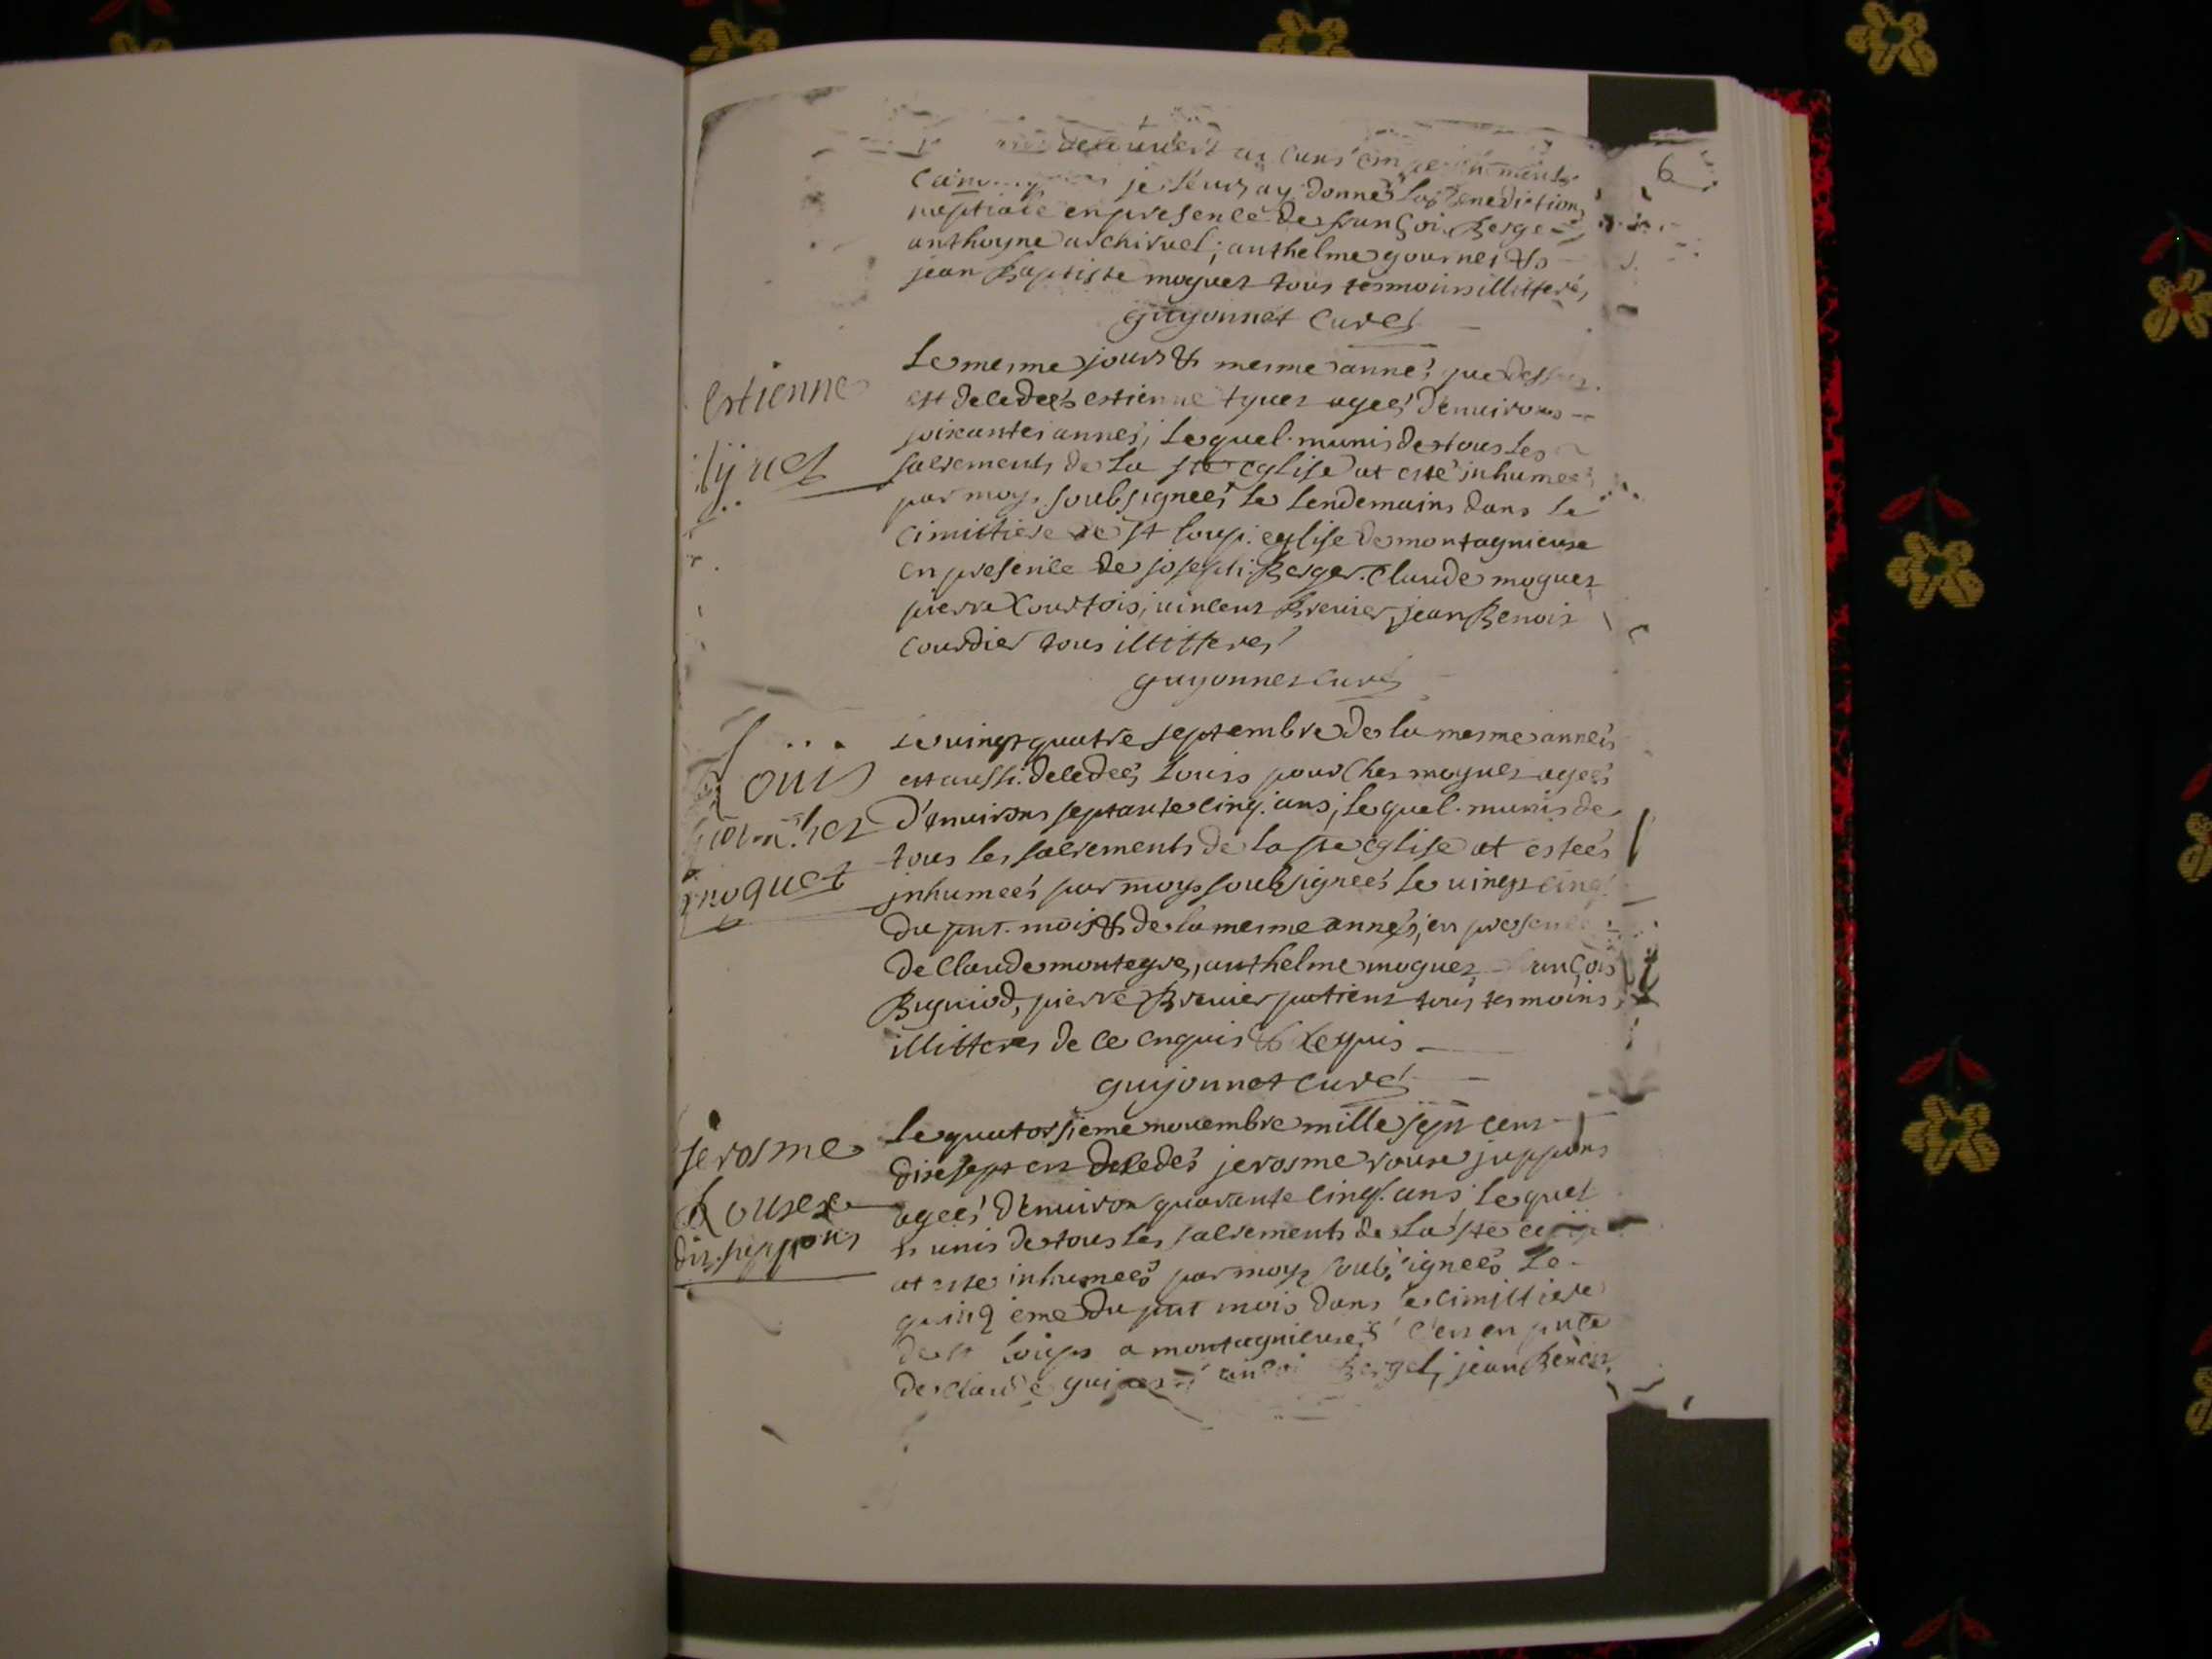 6
je leurs ay donnes la Benediction
nuptiale en presence de françoi Berge
anthoyne archiruel, anthelme gournet &
jean Baptiste moguet tous tesmoins illitteres
guyonnet cures
Le mesme jours & mesme annes que dessus
estienne
est decedees estienne tyuet agees d'enuirons
soixantes annes, Lequel munis de tous les
tyuet
sacrements de La ste eglise at esté inhumees
par moy soubsignees le lendemains dans le
cimittiere de st loup eglise de montagnieuse
en presence de joseph Berger Claude moguet
pierre Courtois, uincent Breuier, jean Benoit
Courdier tous illitteres
guyonnet cures
Le uingt quatre septembre de la mesme annees
Louis
est aussi decedees Louis pourchet moguet agees
D'enuirons septante cinq ans, Lequel munis de
tous les sacrements de la ste eglise at estees
moguet
inhumees par moy soubsignees le uingt cinq
du pnt mois & de la mesme annes, en presence
de Claude montegre, anthelme moguet françois
Bugniod, pierre Breuier patient tous tesmoins
illitteres de ce enquis & requis
guyonnet cures
Le quatorsieme nouembre mille sept cent
jerosme
dixsept est decedes jerosme rouse juppons
Rousex
agees d'enuiron quarante cinq ans, Lequel
dit juppons
munis de tous les sacrements de La ste
at este inhumees par moy soubsignees Le
quinzieme du pnt mois dans le cimittiere
de st loups a montagnieuse
de claude Berger, jean Benoit